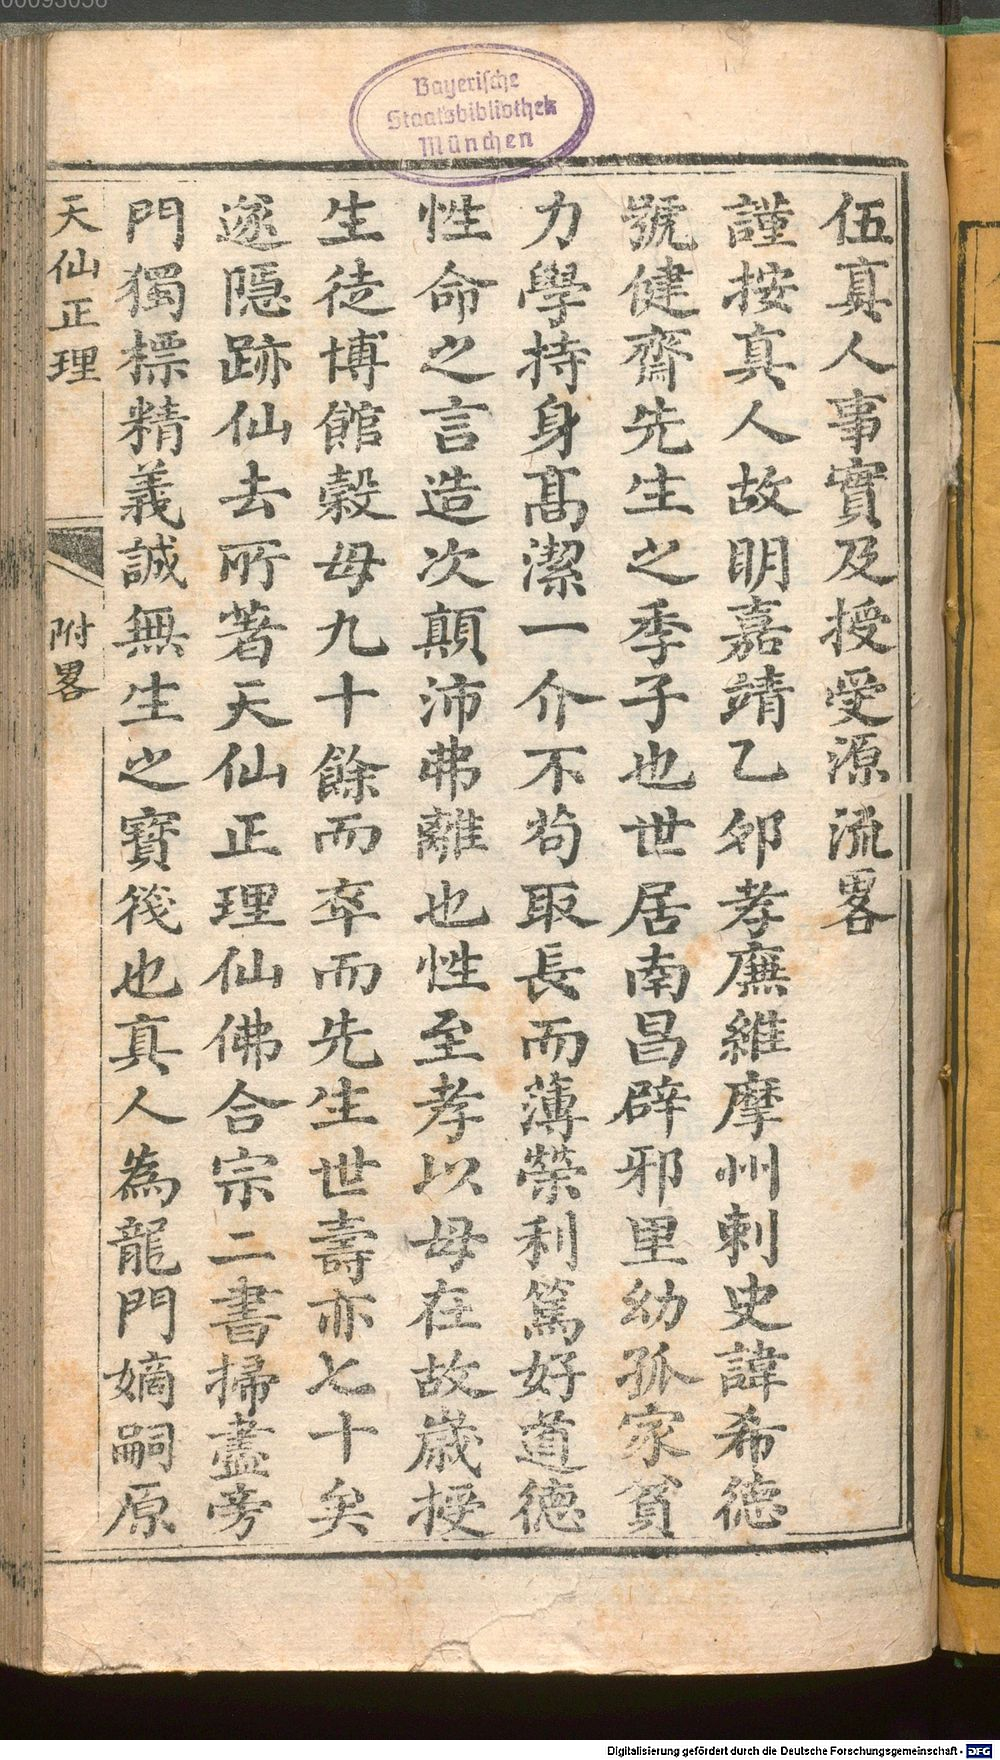 伍真人事實及授受源流畧
謹按真人故明嘉靖乙夘孝廉維摩州刺史諱希德
號健齋先生之季子也世居南昌辟邪里幼孤家貧
力學持身髙潔一介不茍取長而薄榮利篤好道德
性命之言造次顛沛弗離也性至孝以母在故歲授
生徒博館糓母九十餘而卒而先生世壽亦七十矣
遂隱跡仙去所著天仙正理仙佛合宗二書掃盡旁
門獨標精義誠無生之寳筏也真人為龍門嫡嗣原
天仙正理
附畧
Bayerische
Staatsbibliothek
München
00093056
Digitalisierung gefördert durch die Deutsche Forschungsgemeinschaft - DFG